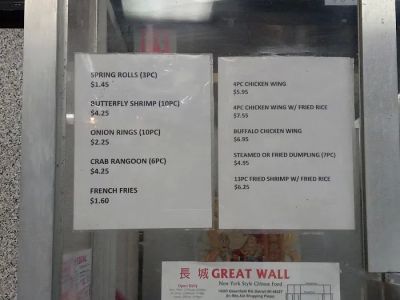 SPRING ROLLS (3PC)
$1.45
BUTTERFLY SHRIMP (10PC)
$4.25
ONION RINGS (10PC)
$2.25
CRAB RANGOON (6PC)
$4.25
FRENCH FRIES
$1.60
4PC CHICKEN WING
$5.95
4PC CHICKEN WING W/ FRIED RICE
$7.55
BUFFALO CHICKEN WING
$6.95
STEAMED OR FRIED DUMPLING (7PC)
$4.95
13PC FRIED SHRIMP W/ FRIED RICE
$6.25
長城 GREAT WALL
New York Style Chinese Food
Open Daily